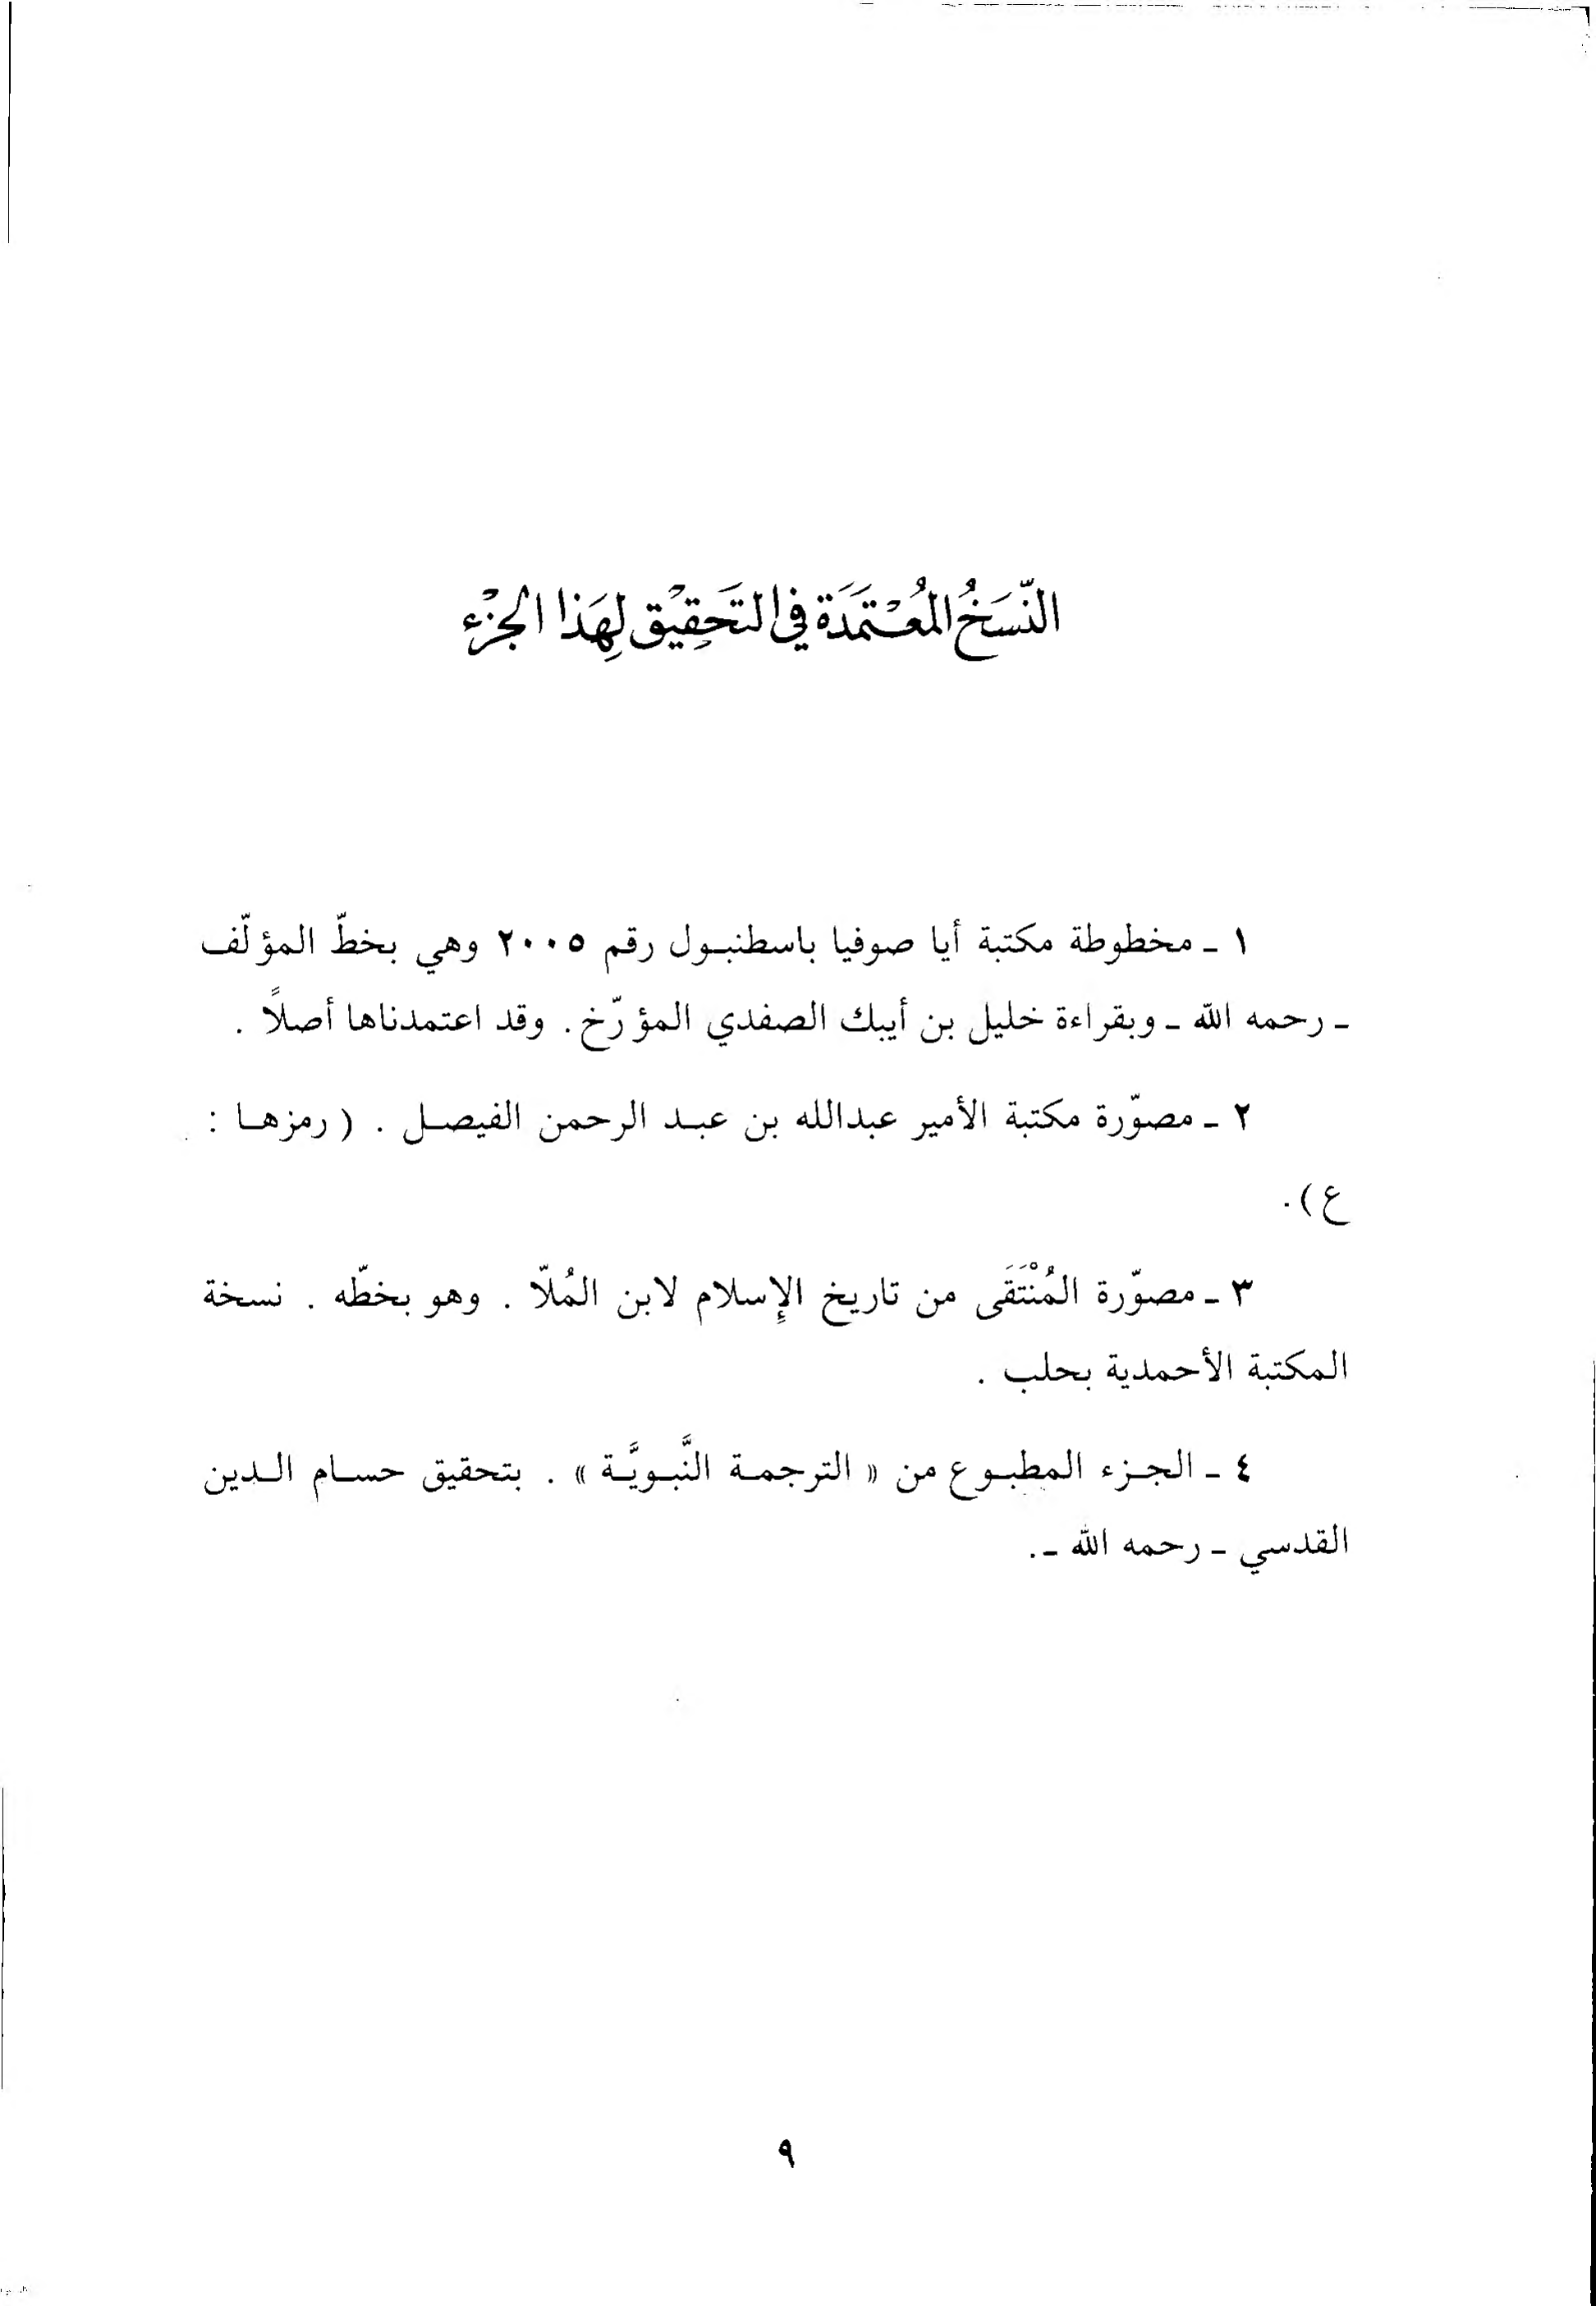 النّسَخُ المُعْتَمَدَة في التَحقِيْق لِهَذا الجزْء
١ ـ مخطوطة مكتبة أيا صوفيا باسطنبـول رقم ٢٠٠٥ وهي بخطّ المؤلّف
ـ رحمه الله ـ وبقراءة خليل بن أيبك الصفدي المؤرّخ. وقد اعتمدناها أصلاً .
٢ ـ مصوّرة مكتبة الأمير عبدالله بن عبـد الرحمن الفيصـل . ( رمزهـا :
ع ) .
٣ ـ مصوّرة المُنْتَقَى من تاريخ الإسلام لابن المُلّا . وهو بخطّه . نسخة
المكتبة الأحمدية بحلب .
٤ ـ الجـزء المطبـوع من « الترجمـة النَّبـويَّـة » . بتحقيق حسـام الـدين
القدسي ـ رحمه الله ـ .
٩